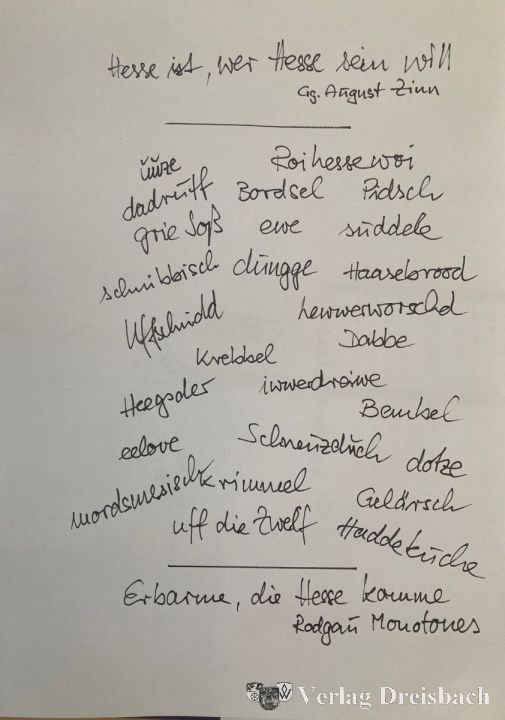 Hesse ist, wer Hesse sein will
Gg. August Zinn
uuze Roihessewoi
dadruff Bordsel Pidsch
grie Soß ewe süddele
schnibbisch dungge Haasebrood
Uffschnidd Lewwerworschd
Krebbel Dabbe
Heegoder iwwerdreiwe
Bembel
eelove Schneuzduch dotze
mordsmesisch Krimmel Gelärsch
uff die Zwelf Haddekuche
Erbarme, die Hesse komme
Rodgau Monotones
Verlag Dreisbach